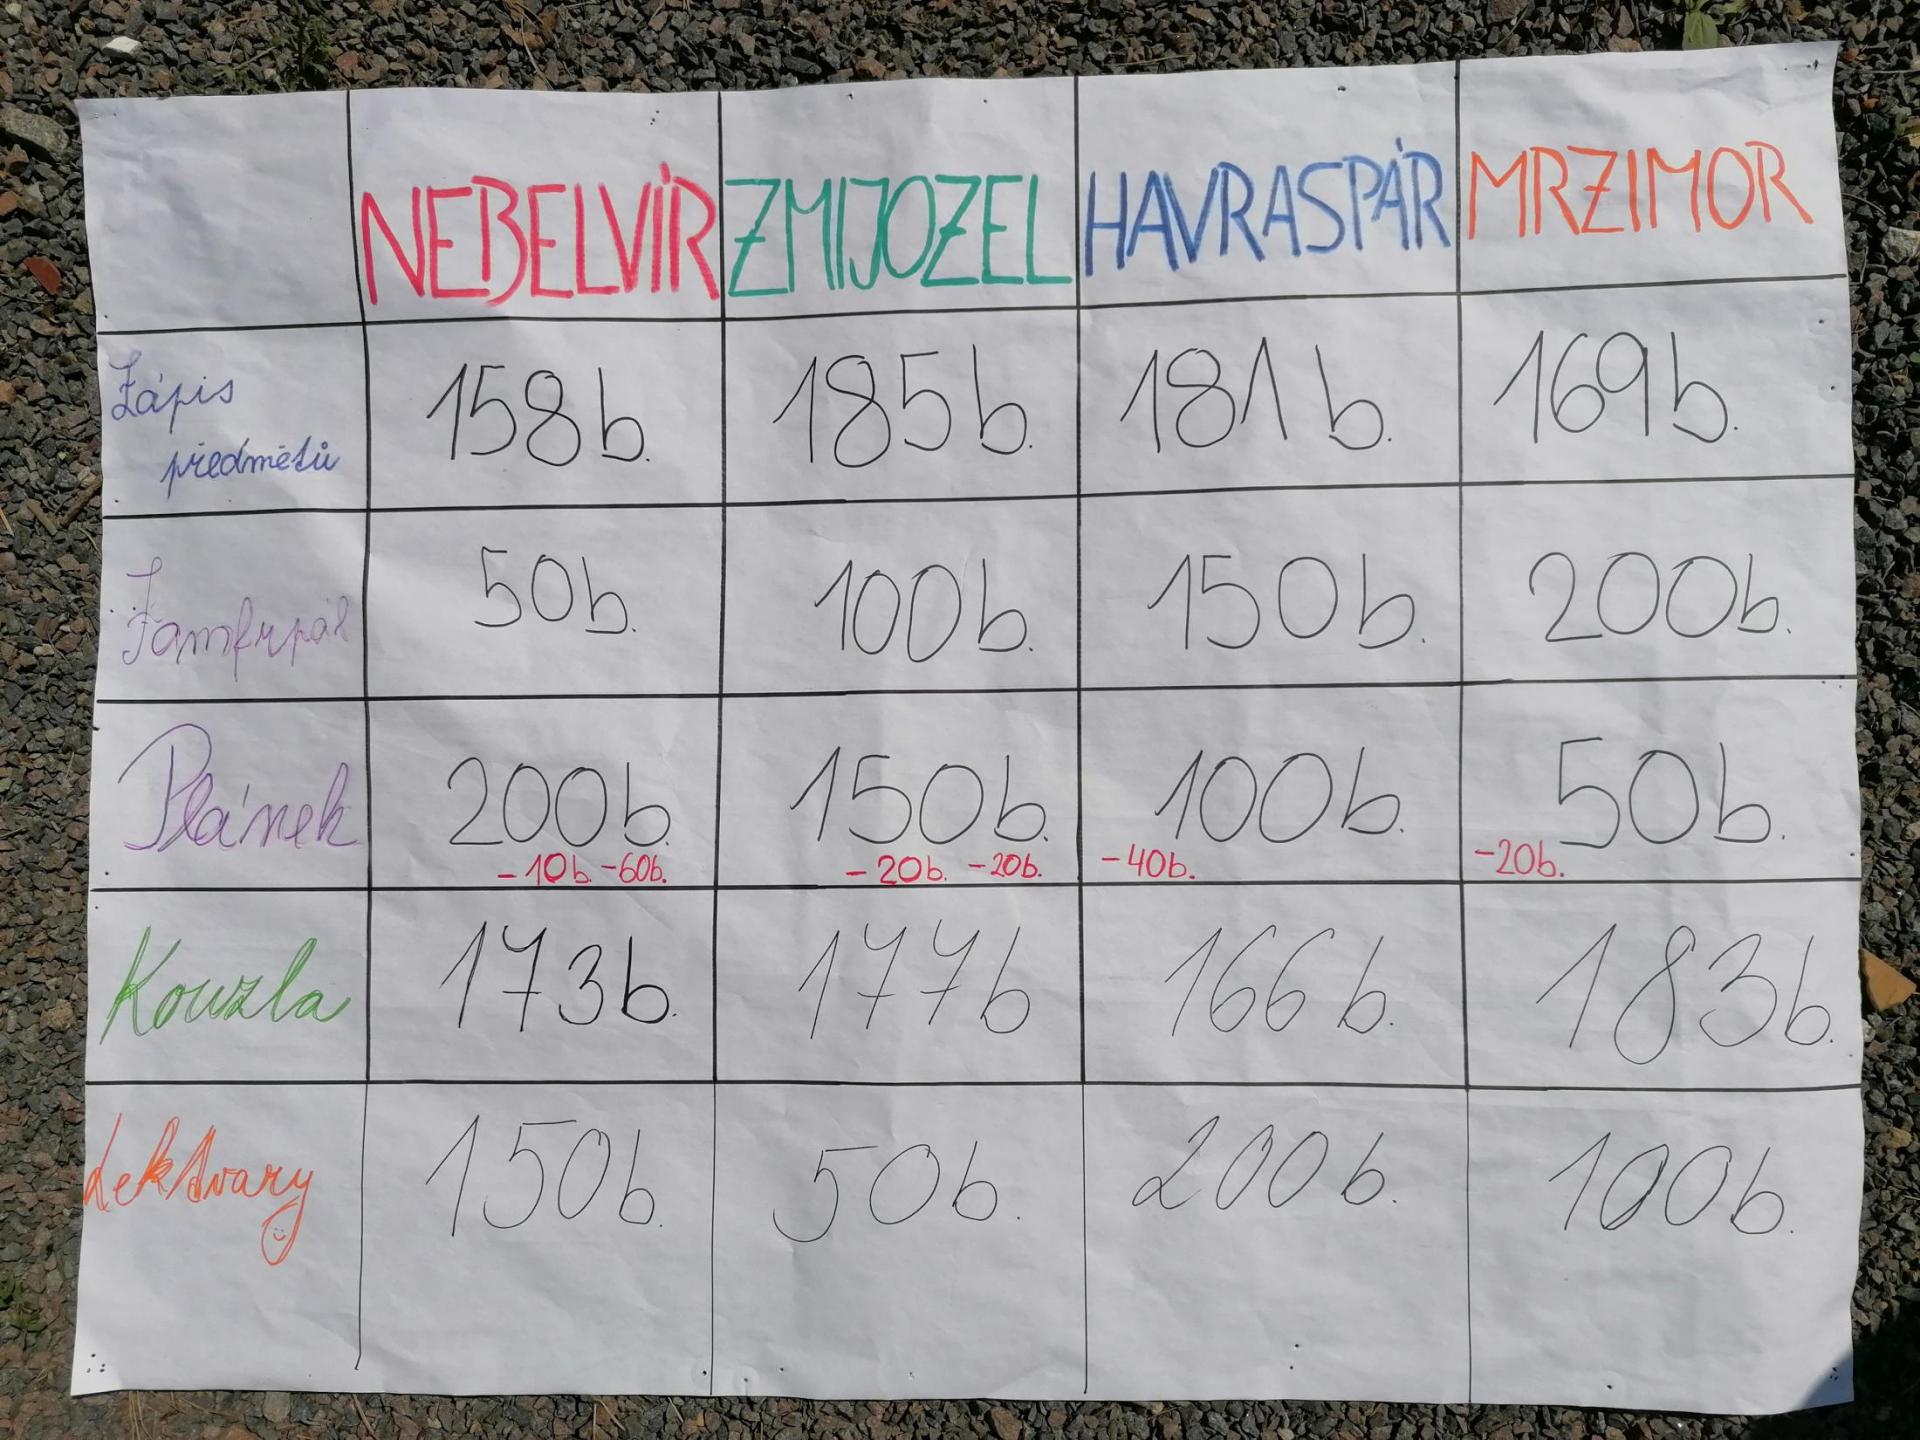 NEBELVÍR ZMIJOZEL HAVRASPÁR MRZIMOR
Zápis
předmětů
158b. 185b. 181b. 169b.
Famfrpál
50b. 100b. 150b. 200b.
Plánek
200b. 150b. 100b. 50b.
-10b. -60b. -20b. -20b. -40b. -20b.
Kouzla
173b. 177b 166b. 183b.
Lektvary
150b. 50b. 200b. 100b.